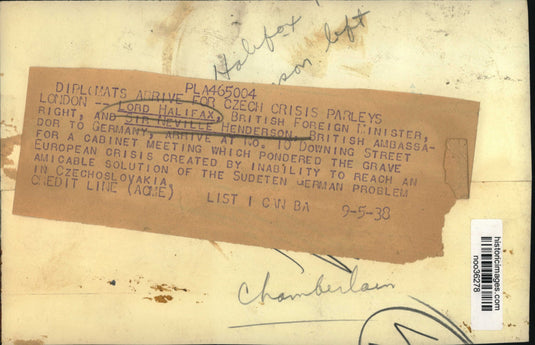 Halifax
left
PLA465004
DIPLOMATS ARRIVE FOR CZECH CRISIS PARLEYS
LONDON -- LORD HALIFAX, BRITISH FOREIGN MINISTER,
RIGHT, AND SIR NEVILLE HENDERSON, BRITISH AMBASSA-
DOR TO GERMANY, ARRIVE AT NO. 10 DOWNING STREET
FOR A CABINET MEETING WHICH PONDERED THE GRAVE
EUROPEAN CRISIS CREATED BY INABILITY TO REACH AN
AMICABLE SOLUTION OF THE SUDETEN GERMAN PROBLEM
IN CZECHOSLOVAKIA.
CREDIT LINE (ACME) LIST 1 CWN BA 9-5-38
historicimages.com
noo36278
Chamberlain